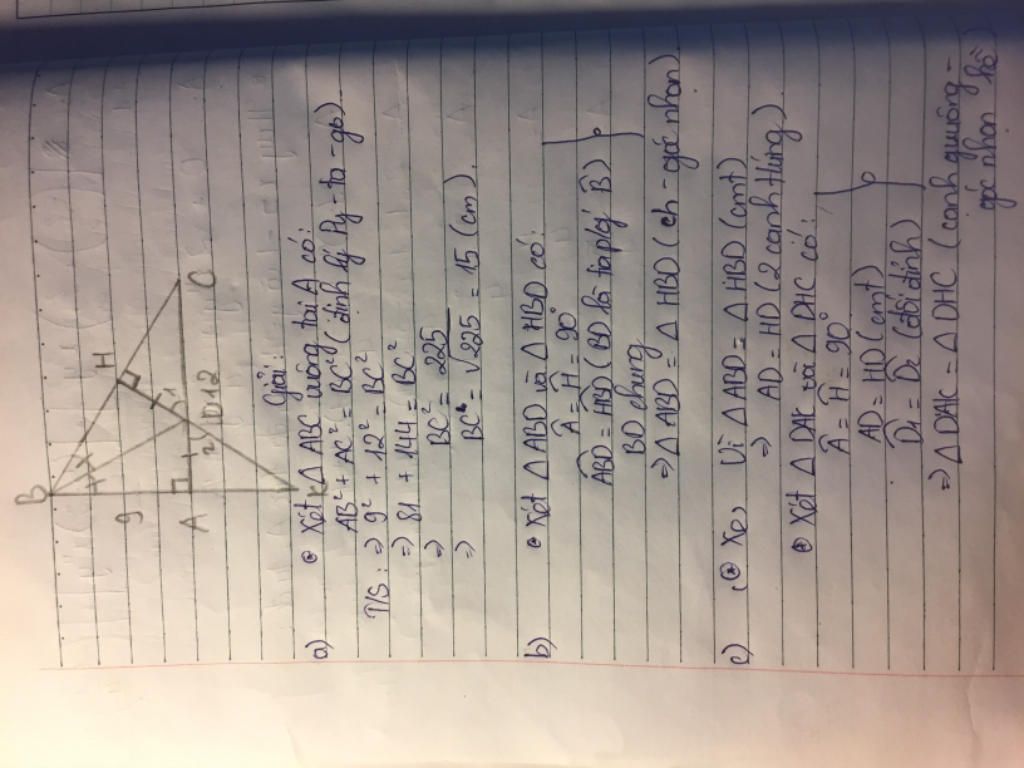 B
H
9
1
2
D
12
A
C
K
Giải:
a) • Xét Δ ABC vuông tại A có:
AB² + AC² = BC² (định lý Py-ta-go)
T/S: => 9² + 12² = BC²
=> 81 + 144 = BC²
=> BC² = 225
=> BC = √225 = 15 (cm).
b) • Xét Δ ABD và Δ HBD có:
Â = Ĥ = 90°
ABD = HBD (BD là ta p/g B̂)
BD chung
=> Δ ABD = Δ HBD (ch - góc nhọn)
c) Vì Δ ABD = Δ HBD (cmt)
=> AD = HD (2 cạnh t/ứng)
• Xét Δ DAK và Δ DHC có:
Â = Ĥ = 90°
AD = HD (cmt)
D̂1 = D̂2 (đối đỉnh)
=> Δ DAK = Δ DHC (cạnh góc vuông -
góc nhọn kề)